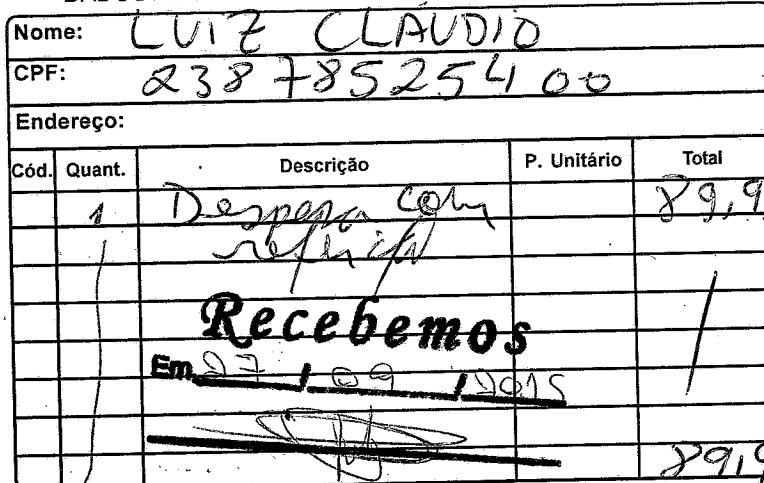 Nome: LUIZ CLÁUDIO
CPF: 238 785254 00
Endereço:
Cód. Quant. Descrição P. Unitário Total
1 Despesa com 89,9
refeição
Recebemos
Em 27 / 09 / 2015
89,9